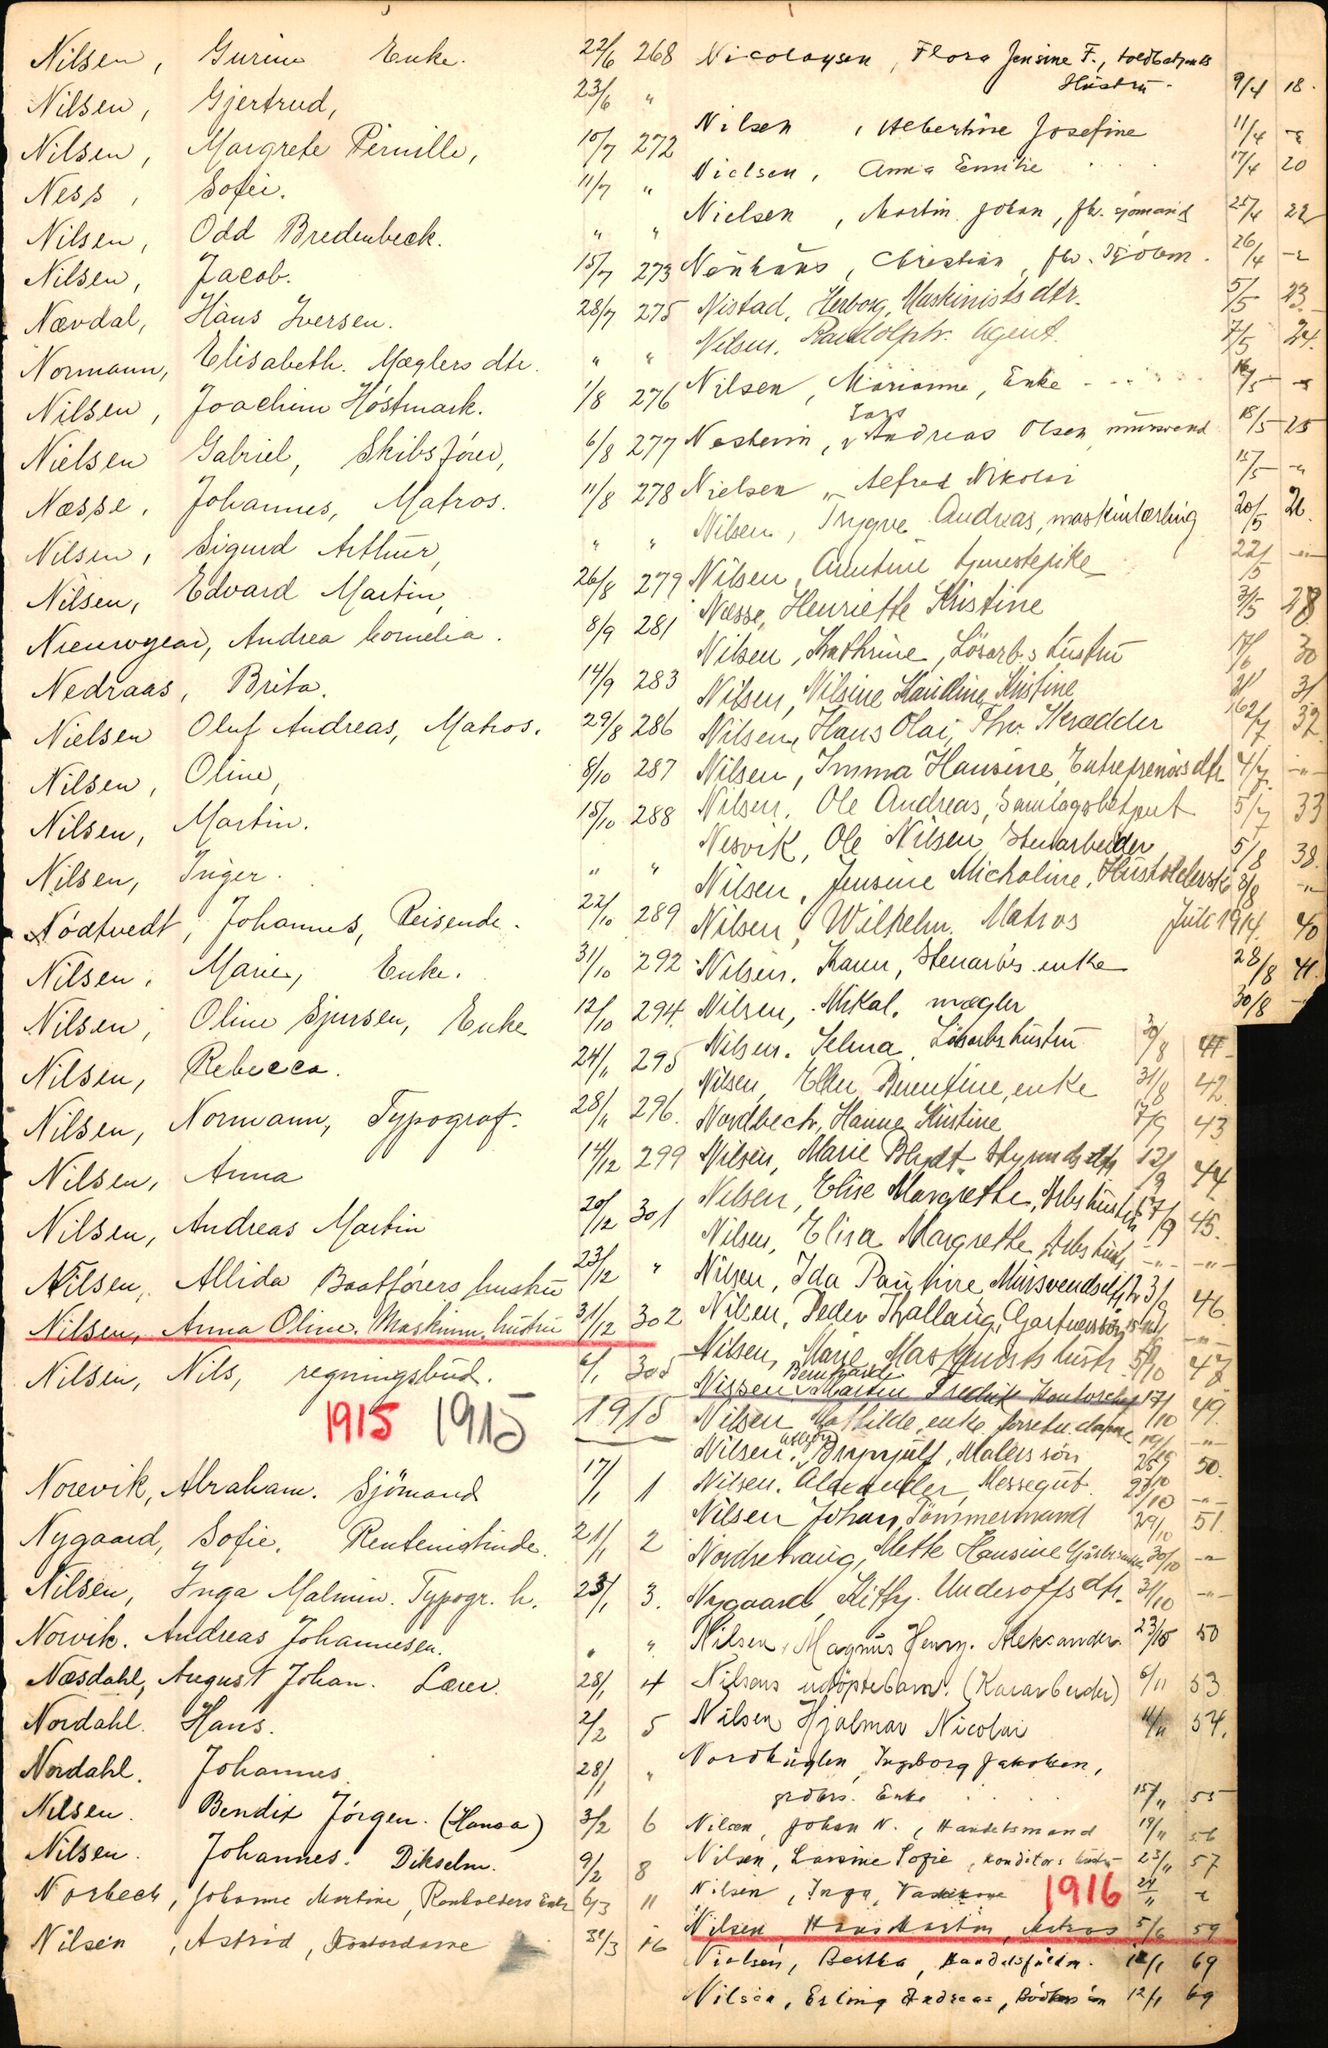 Nilsen, Gurine Enke. 22/6 268
Nilsen, Gjertrud, 23/6 "
Nilsen, Margrete Pernille, 10/7 272
Ness, Sofie. 11/7 "
Nilsen, Odd Bredenbeck. " "
Nilsen, Jacob. 15/7 273
Nævdal, Hans Iversen. 28/7 275
Normann, Elisabeth. Mæglers dtr. " "
Nilsen, Joachim Höstmark. 1/8 276
Nielsen Gabriel, Skibsförer, 6/8 277
Næsse, Johannes, Matros. 11/8 278
Nilsen, Sigurd Arthur, " "
Nilsen, Edvard Martin, 26/8 279
Andrea Cornelia. 8/9 281
Nedraas, Brita. 14/9 283
Nielsen Oluf Andreas, Matros. 29/8 286
Nilsen, Oline, 8/10 287
Nilsen, Martin. 15/10 288
Nilsen, Inger. " "
Nödtvedt, Johannes, Reisende. 22/10 289
Nilsen, Marie, Enke. 31/10 292
Nilsen, Oline Sjursen, Enke 12/10 294.
Nilsen, Rebecca. 24/11 295
Nilsen, Normann, Typograf. 28/11 296.
Nilsen, Anna 14/12 299
Nilsen, Andreas Martin 20/12 301
Nilsen, Allida Baatförers hustru 23/12 "
Nilsen, Anna Oline. Maskinm. hustru 31/12 302
Nilsen, Nils, regningsbud. 305
1915 1915 1915
Norevik, Abraham. Sjömand 17/1 1
Nygaard, Sofie. Rentenistinde. 21/1 2
Nilsen, Inga Malmin. Typogr. h. 23/1 3.
Norvik. Andreas Johannesen. " "
Næsdahl, August Johan. Lærer. 28/1 4
Nordahl. Hans. 2/2 5
Nordahl. Johannes. 28/1 "
Nilsen. Bendix Jörgen. (Hansa) 3/2 6
Nilsen. Johannes. 9/2 8
Norbech, Johanne Martine, Enke 6/3 11
Nilsen, Astrid, 16
Nicolaysen, Flora Jensine F., toldbetjents
Hustru. 9/4 18.
Nilsen, Albertine Josefine 11/4 - "
Nielsen, Anna Emilie 17/4 20
Nielsen, Martin Johan, fhv. sjömand 25/4 22
Neuhaus, Christian, fhv. 26/4 - "
Nistad, Herborg, Maskinists dtr. 5/5 23
Nilsen, Randolph. Agent. 7/5 24.
Nilsen, Marianne, Enke - "
Lars
Andreas Olsen, mursvend 18/5 25
Nielsen, Alfred Nikolai 15/5 - "
Nilsen, Trygve Andreas, maskinlærling 20/5 26
Nilsen, Anntine tjenestepike 22/5 - " -
Næsse, Henriette Kristine 28
Nilsen, Kathrine, Lösarb.s hustru 17/6 30
Nilsen, Nilsine Kristine 31
Nilsen, Hans Olai, Fhv. Skrædder 32
Nilsen, Imma Hansine, Entreprenörs dtr 4/7 - " -
Nilsen, Ole Andreas, 5/7 33
Nesvik, Ole Nilsen, Stenarbeider 5/8 38.
Nilsen, Jensine Micholine, 8/8 "
Nilsen, Wilhelm. Matros Juli 1914. 40
Nilsen, Karen, Stenarb's enke 28/8 41.
Nilsen, Mikal, mægler 30/8 - " -
Nilsen. Selma, Lösarbs hustru 30/8 41 -
Nilsen, Ellen enke 31/8 42.
Nordbech, Hanne Kristine 7/9 43
Nilsen, Marie Blydt. 12/9 44
Nilsen, Elise Margrethe, Arbs hustru 17/9 45.
Nilsen, Elisa Margrethe - " - - " -
Nilsen, Ida Pauline, Mursvends dtr 46.
Nilsen, Peder - " -
Nilsen, Marie Maskinists hustr. 5/10 47
Bernhard
Nissen, Martin Fredrik 17/10 49.
Nilsen Mathilde, enke - " -
Nilsen. Brynjulf, Malers sön 50.
Nilsen. Alexander, Messegut. - " -
Nilsen Johan, Tömmermand 29/10 51.
Mette Hansine 30/10 - " -
Nygaard, Kitty. Underoffs dtr. 31/10 - " -
Nilsen, Magnus Henry. Aleksander. 50
Nilsens udöpte barn. 6/11 53
Nilsen Hjalmar Nicolai 11/11 54.
Ingeborg Jakobsen,
Enke 15/11 55
Nilsen, Johan N., Handelsmand 19/11 56
Nilsen, Larsine Sofie, konditors hustru 23/11 57
Nilsen, Inga, 24/11 "
1916
Nilsen Hans Martin, Matros 59
Nielsen, Bertha, 12/1 69
Nilsen, Erling Andreas, 12/1 69